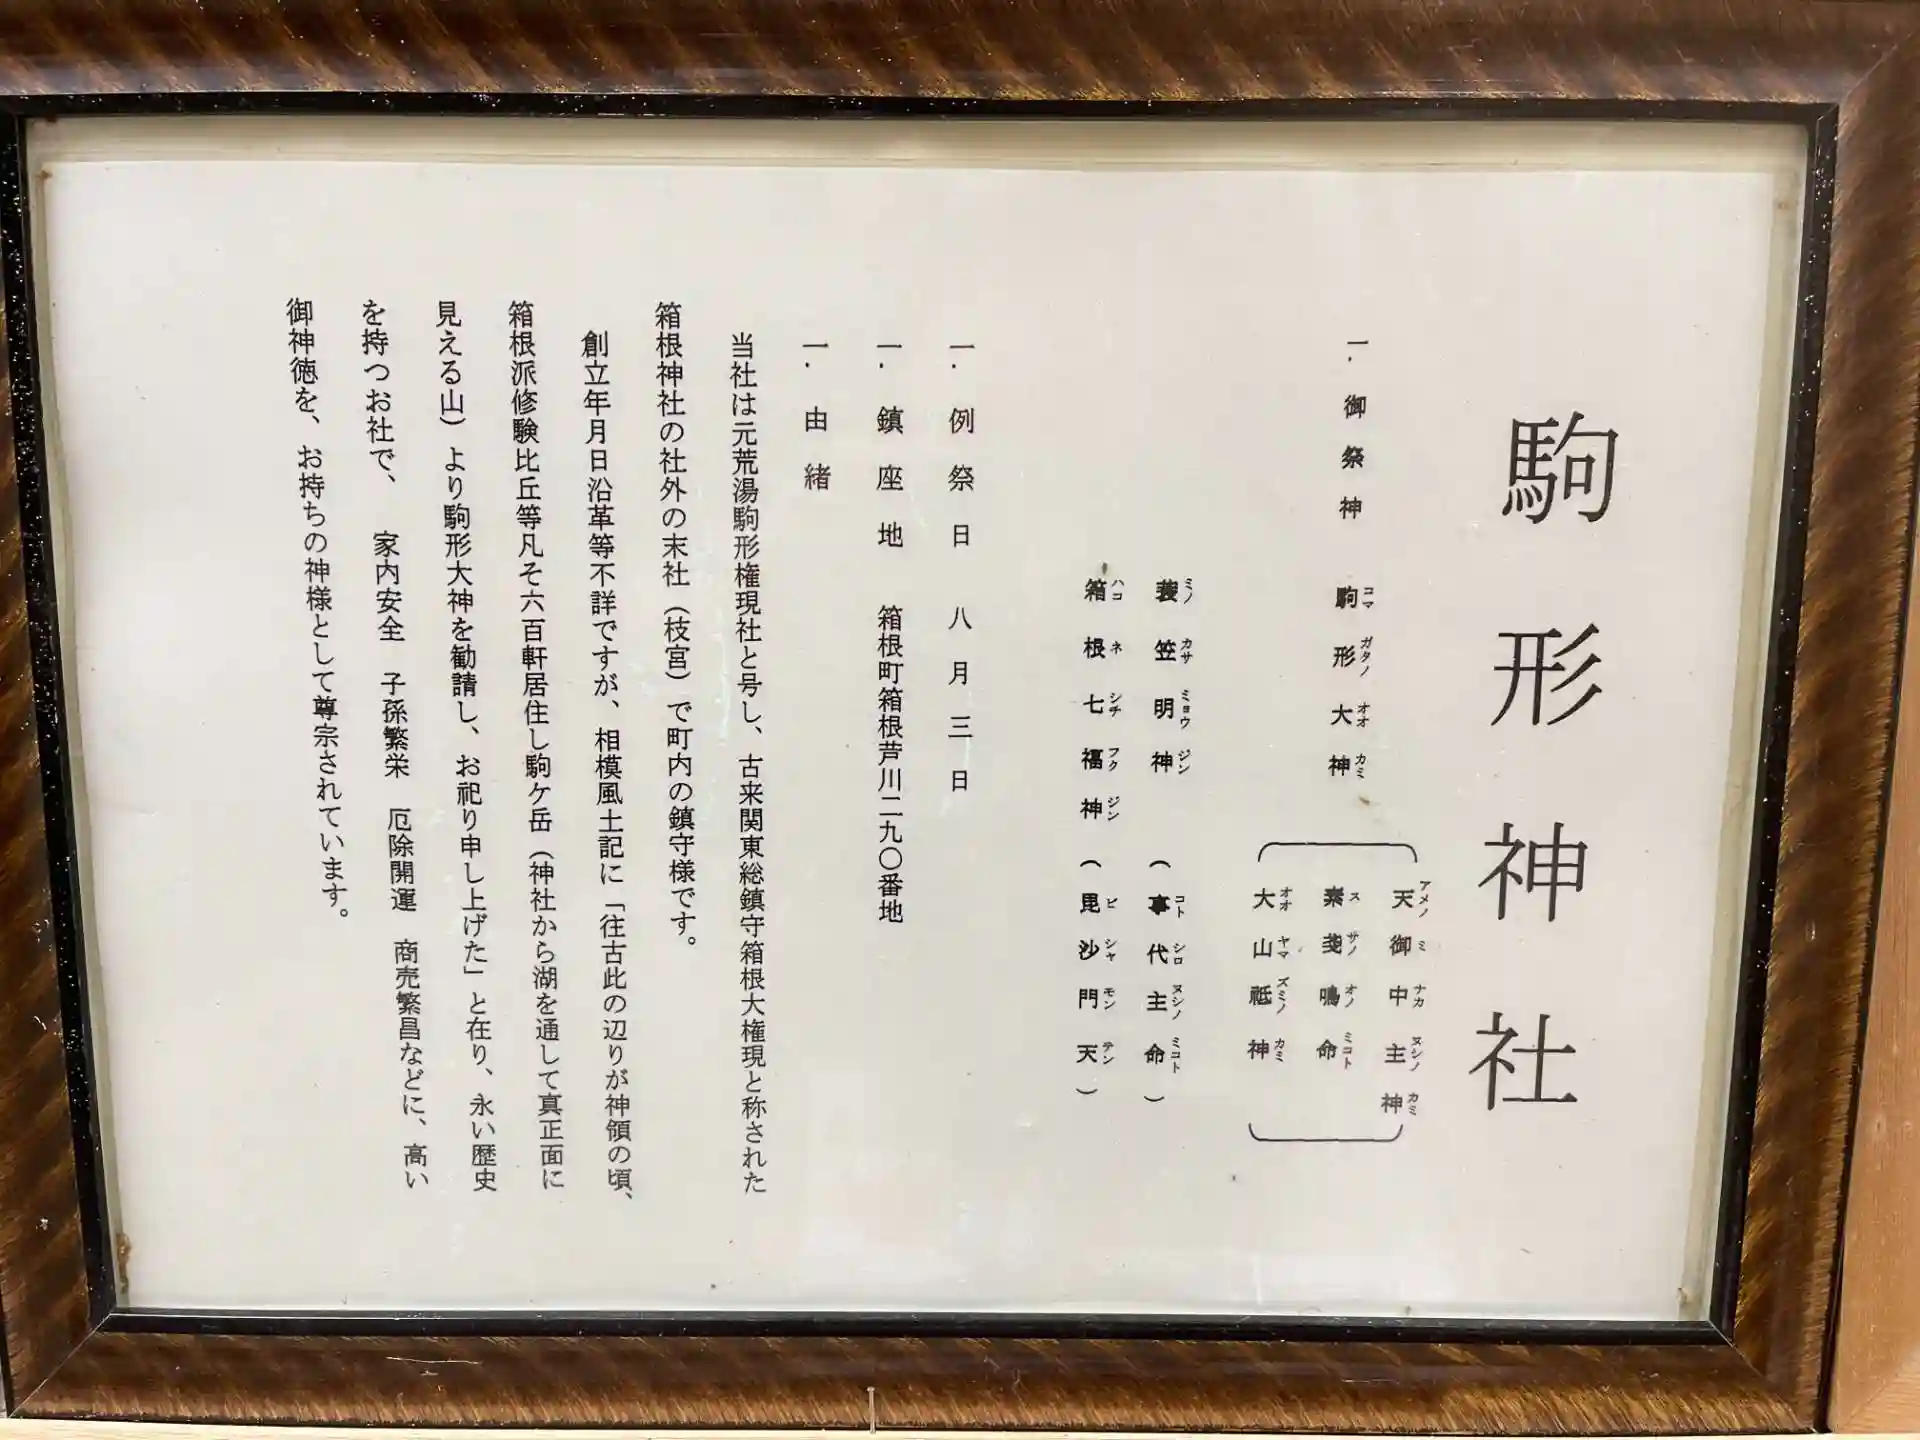 駒形神社
一．御祭神　駒形大神
コマガタノオオカミ
天御中主神
アメノミナカヌシノカミ
素戔嗚命
スサノオノミコト
大山祗神
オオヤマズミノカミ
蓑笠明神（事代主命）
ミノカサミョウジン　コトシロヌシノミコト
箱根七福神（毘沙門天）
ハコネシチフクジン　ビシャモンテン
一．例祭日　八月三日
一．鎮座地　箱根町箱根芦川二九〇番地
一．由緒
当社は元荒湯駒形権現社と号し、古来関東総鎮守箱根大権現と称された
箱根神社の社外の末社（枝宮）で町内の鎮守様です。
創立年月日沿革等不詳ですが、相模風土記に「往古此の辺りが神領の頃、
箱根派修験比丘等凡そ六百軒居住し駒ケ岳（神社から湖を通して真正面に
見える山）より駒形大神を勧請し、お祀り申し上げた」と在り、永い歴史
を持つお社で、　家内安全　子孫繁栄　厄除開運　商売繁昌などに、高い
御神徳を、お持ちの神様として尊宗されています。